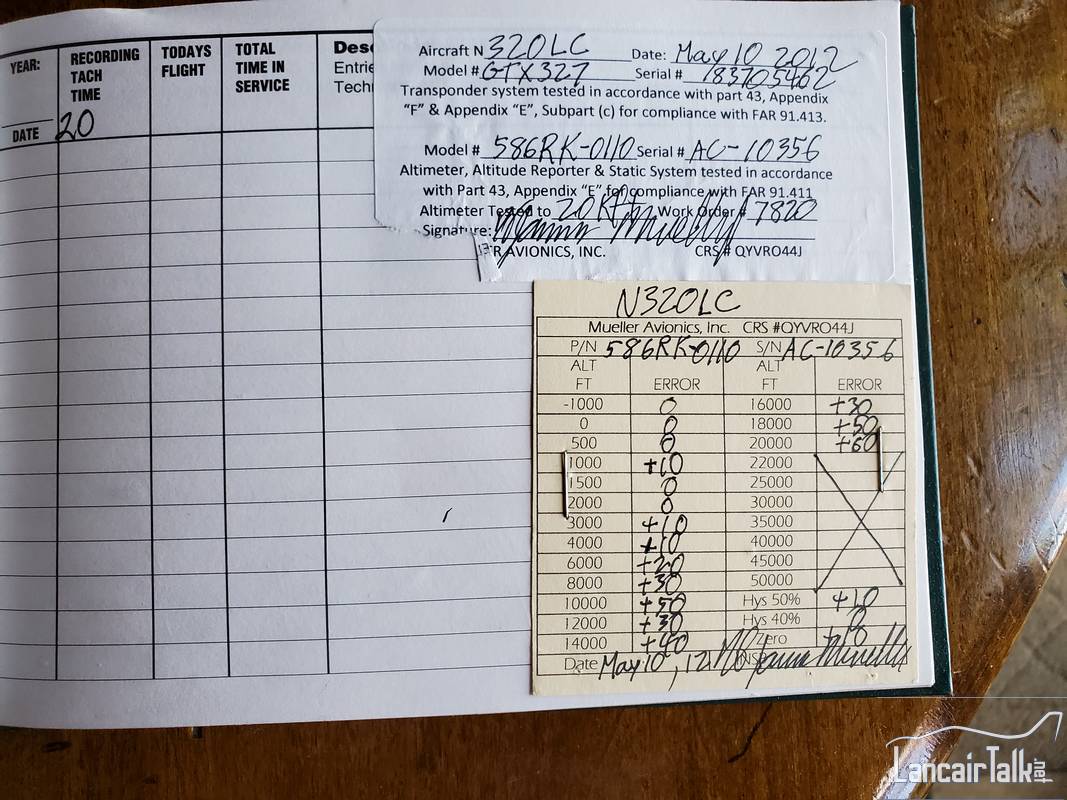 YEAR:
DATE 20
RECORDING
TACH
TIME
TODAYS
FLIGHT
TOTAL
TIME IN
SERVICE
Desc
Entrie
Techn
Aircraft N 320LC Date: May 10 2012
Model # GTX327 Serial # 183705462
Transponder system tested in accordance with part 43, Appendix
"F" & Appendix "E", Subpart (c) for compliance with FAR 91.413.
Model # 586RK-0110 Serial # AC-10356
Altimeter, Altitude Reporter & Static System tested in accordance
with Part 43, Appendix "E", for compliance with FAR 91.411
Altimeter Tested to 20Kft Work Order # 7820
Signature:
R AVIONICS, INC. CRS # QYVRO44J
N320LC
Mueller Avionics, Inc. CRS #QYVRO44J
P/N 586RK-0110 S/N AC-10356
ALT ALT
FT ERROR FT ERROR
-1000 0 16000 +30
0 0 18000 +50
500 0 20000 +60
1000 +10 22000
1500 0 25000
2000 0 30000
3000 +10 35000
4000 +10 40000
6000 +20 45000
8000 +30 50000
10000 +50 Hys 50% +10
12000 +30 Hys 40% 0
14000 +40 Zero
Date May 10, 12
LancairTalk.net